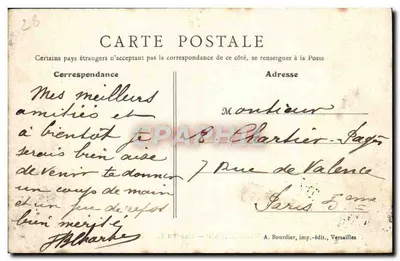 28
CARTE POSTALE
Certains pays étrangers n'acceptant pas la correspondance de ce côté, se renseigner à la Poste
Correspondance
Mes meilleurs
amitiés et
à bientôt je
serais bien aise
de venir te donner
un coup de main
et un peu de repos
bien mérité
Adresse
Monsieur
E Chartier-Pagès
7 Rue de Valence
Paris 5me
A. Bourdier, imp.-édit., Versailles